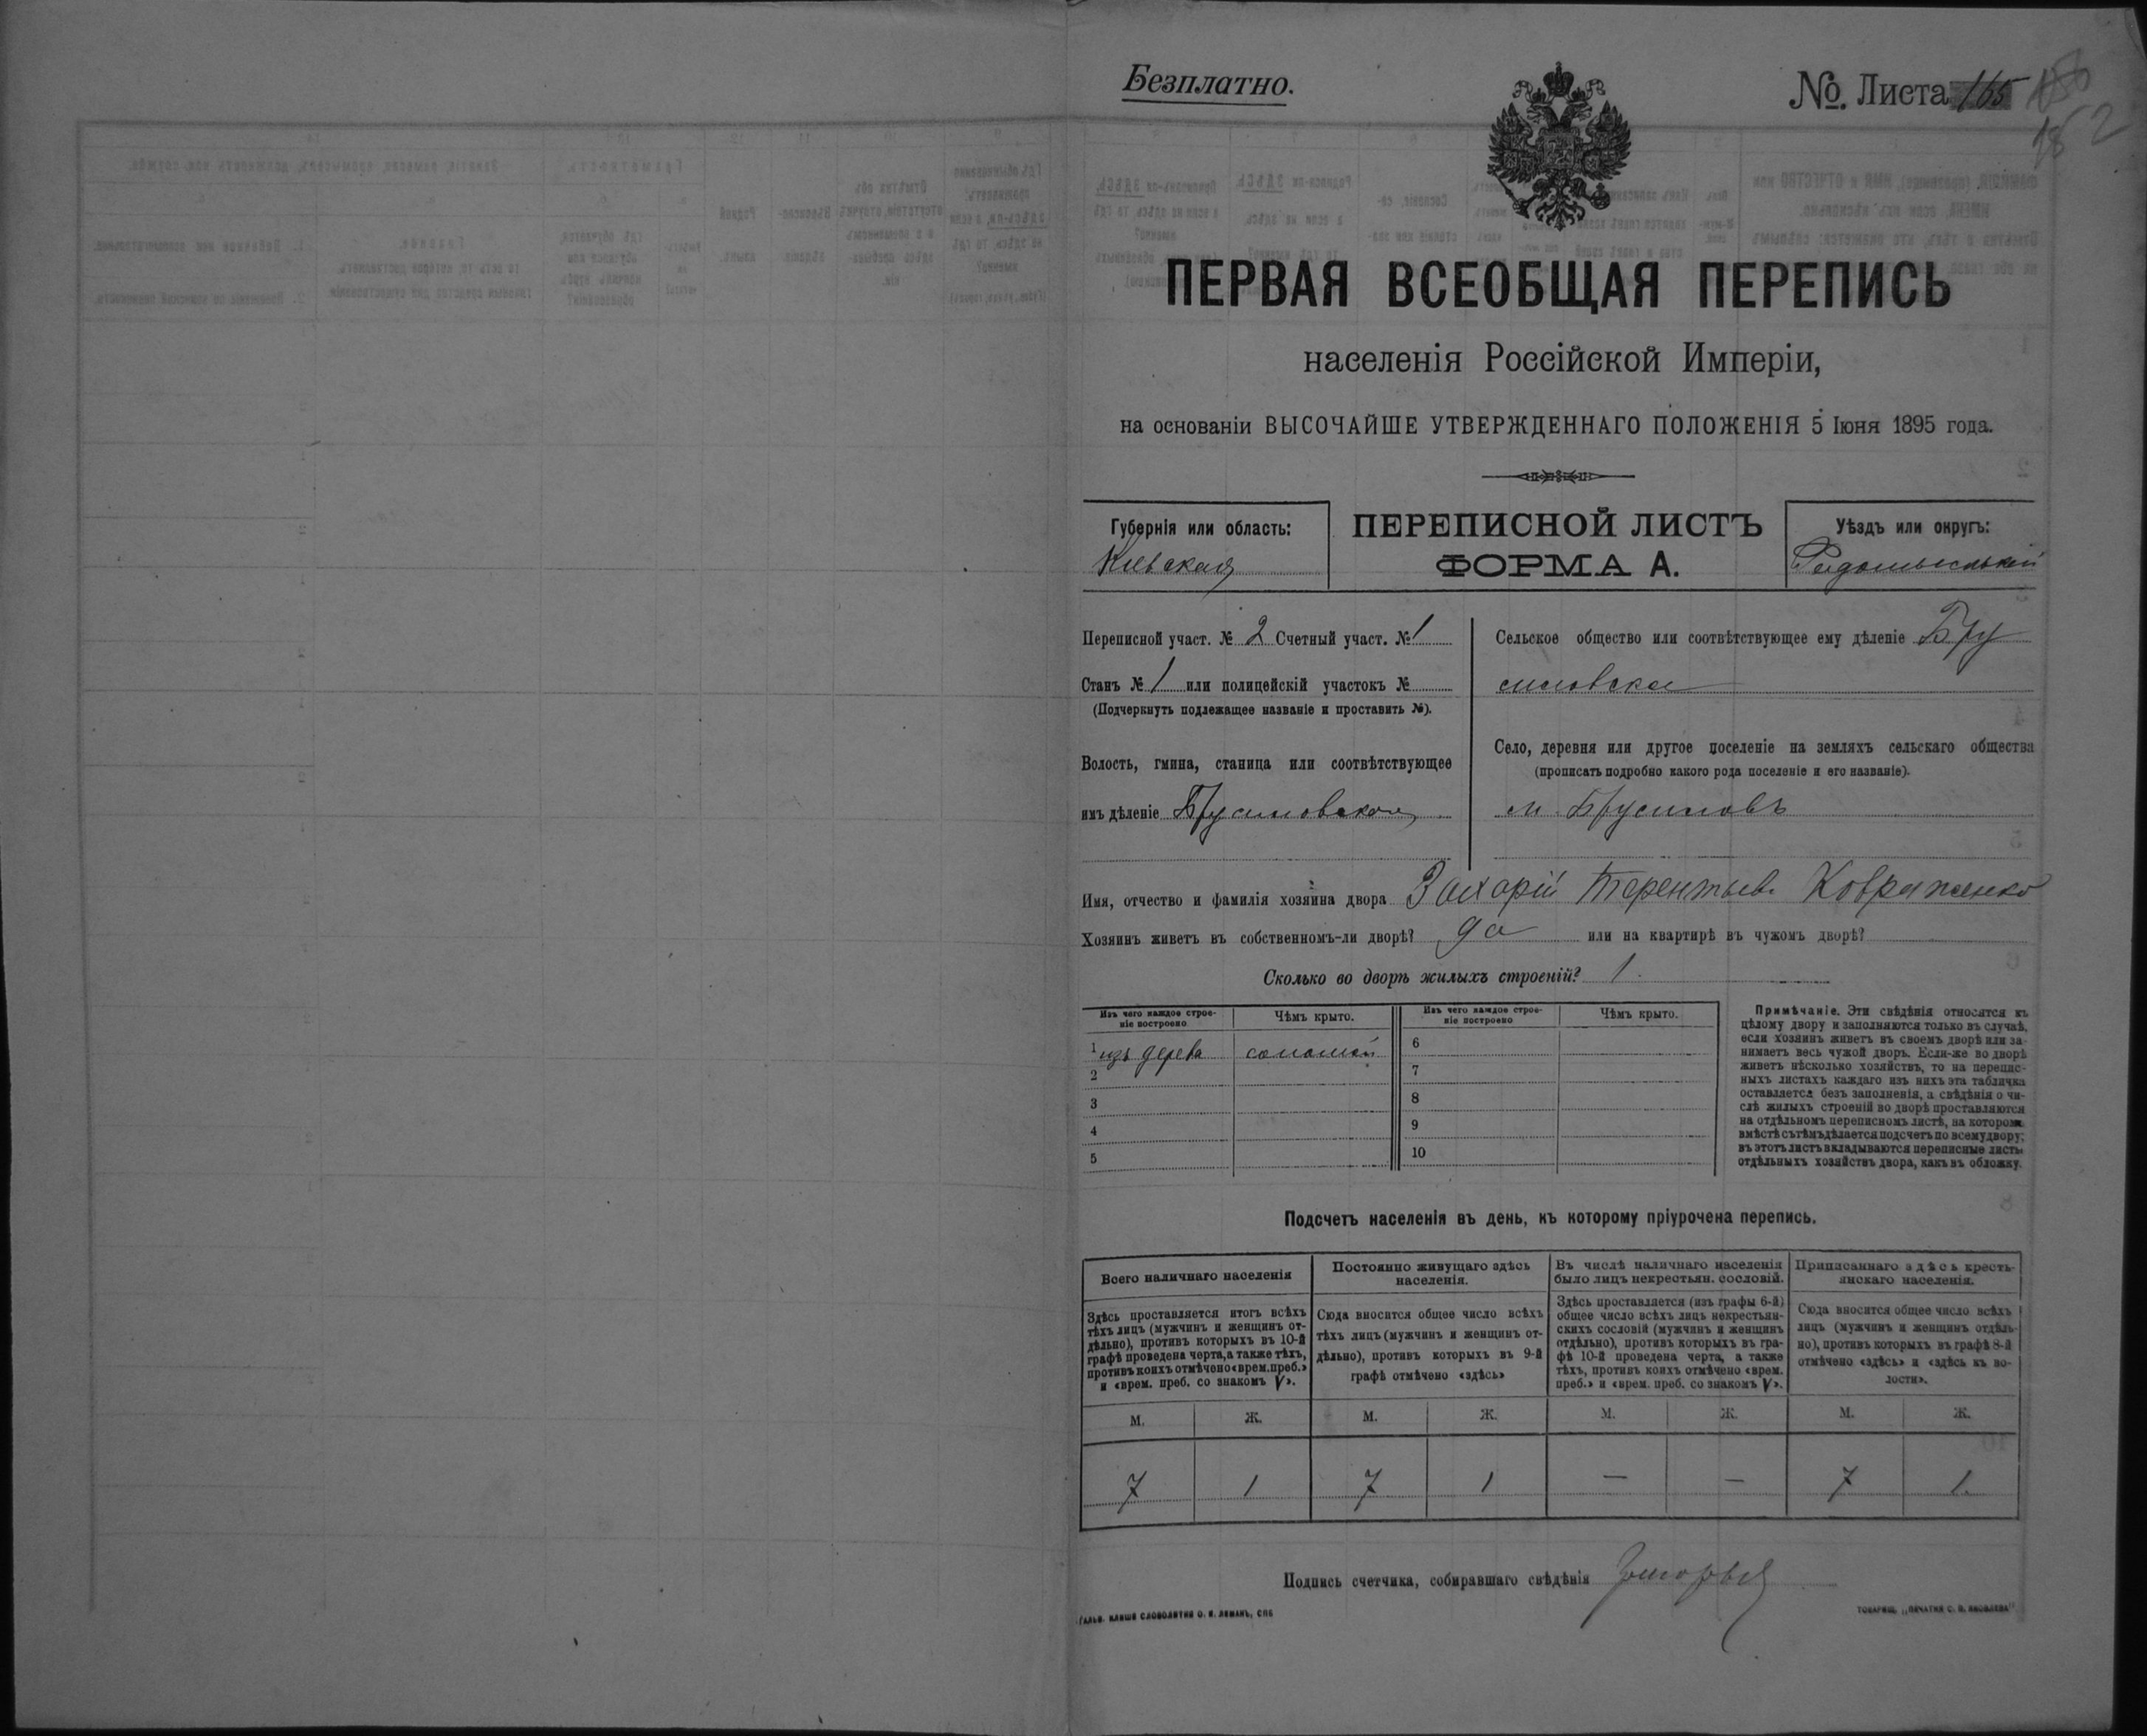 Безплатно.
№. Листа 165
182
ПЕРВАЯ ВСЕОБЩАЯ ПЕРЕПИСЬ
населенія Россійской Имперіи,
на основаніи ВЫСОЧАЙШЕ УТВЕРЖДЕННАГО ПОЛОЖЕНІЯ 5 Іюня 1895 года.
Губернія или область:
Кіевская
ПЕРЕПИСНОЙ ЛИСТЪ
ФОРМА А.
Уѣздъ или округъ:
Радомысльскій
Переписной участ. № 2 Счетный участ. № 1
Станъ № 1 или полицейскій участокъ №
(Подчеркнуть подлежащее названіе и проставить №).
Волость, гмина, станица или соотвѣтствующее
имъ дѣленіе Брусиловская
Сельское общество или соотвѣтствующее ему дѣленіе Бру
силовское
Село, деревня или другое поселеніе на земляхъ сельскаго общества
(прописать подробно какого рода поселеніе и его названіе).
м. Брусиловъ
Имя, отчество и фамилія хозяина двора Захарій Терентьев. Ковраженко
Хозяинъ живетъ въ собственномъ-ли дворѣ? да или на квартирѣ въ чужомъ дворѣ?
Сколько во дворѣ жилыхъ строеній? 1.
Изъ чего каждое строе-
ніе построено
Чѣмъ крыто.
Изъ чего каждое строе-
ніе построено
Чѣмъ крыто.
1 изъ дерева соломой 6
2 7
3 8
4 9
5 10
Примѣчаніе. Эти свѣдѣнія относятся къ
цѣлому двору и заполняются только въ случаѣ,
если хозяинъ живетъ въ своемъ дворѣ или за-
нимаетъ весь чужой дворъ. Если-же во дворѣ
живетъ нѣсколько хозяйствъ, то на перепис-
ныхъ листахъ каждаго изъ нихъ эта табличка
оставляется безъ заполненія, а свѣдѣнія о чи-
слѣ жилыхъ строеній во дворѣ проставляются
на отдѣльномъ переписномъ листѣ, на которомъ
вмѣстѣ съ тѣмъ дѣлается подсчетъ по всему двору;
въ этотъ листъ вкладываются переписные листы
отдѣльныхъ хозяйствъ двора, какъ въ обложку.
Подсчетъ населенія въ день, къ которому пріурочена перепись.
Всего наличнаго населенія
Постоянно живущаго здѣсь
населенія.
Въ числѣ наличнаго населенія
было лицъ некрестьян. сословій.
Приписаннаго здѣсь кресть-
янскаго населенія.
Здѣсь проставляется итогъ всѣхъ
тѣхъ лицъ (мужчинъ и женщинъ от-
дѣльно), противъ которыхъ въ 10-й
графѣ проведена черта, а также тѣхъ,
противъ коихъ отмѣчено «врем. преб.»
и «врем. преб. со знакомъ V».
Сюда вносится общее число всѣхъ
тѣхъ лицъ (мужчинъ и женщинъ от-
дѣльно), противъ которыхъ въ 9-й
графѣ отмѣчено «здѣсь»
Здѣсь проставляется (изъ графы 6-й)
общее число всѣхъ лицъ некрестьян-
скихъ сословій (мужчинъ и женщинъ
отдѣльно), противъ которыхъ въ гра-
фѣ 10-й проведена черта, а также
тѣхъ, противъ коихъ отмѣчено «врем.
преб.» и «врем. преб. со знакомъ V».
Сюда вносится общее число всѣхъ
лицъ (мужчинъ и женщинъ отдѣль-
но), противъ которыхъ въ графѣ 8-й
отмѣчено «здѣсь» и «здѣсь къ во-
лости».
М. Ж. М. Ж. М. Ж. М. Ж.
7 1 7 1 — — 7 1.
Подпись счетчика, собиравшаго свѣдѣнія
ГАЛЬВ. КЛИШЕ СЛОВОЛИТНИ О. И. ЛЕМАНЪ, СПБ
ТОВАРИЩ. „ПЕЧАТНЯ С. П. ЯКОВЛЕВА"